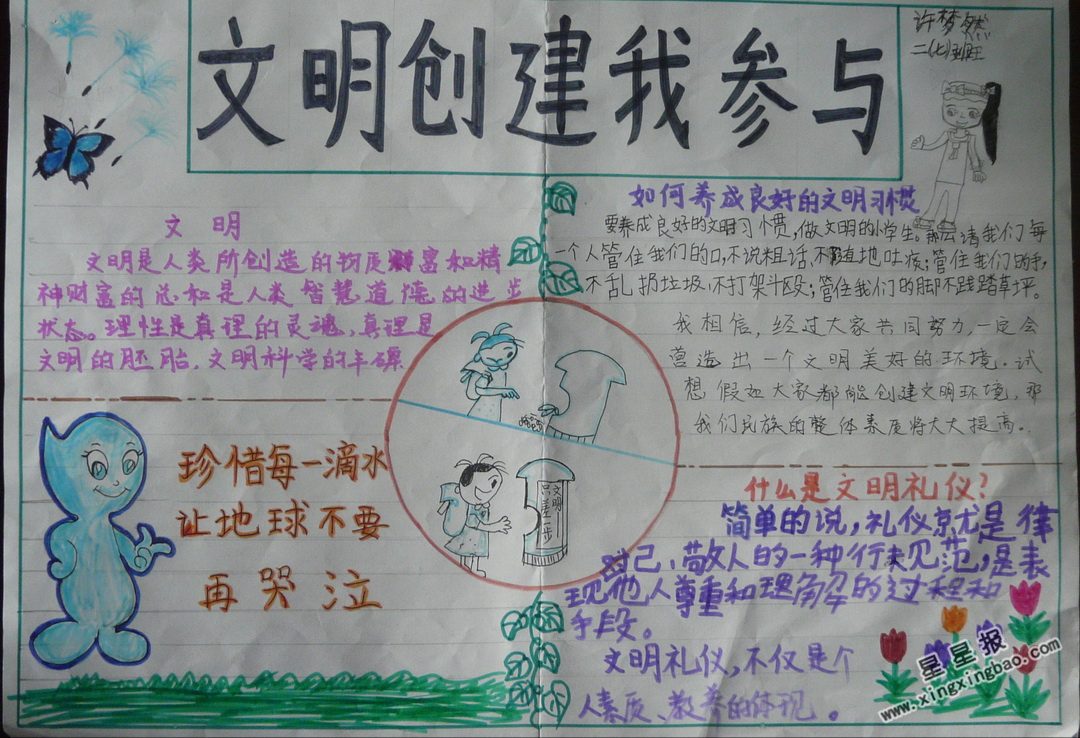 文明创建我参与
许梦然
二(七)班
文 明
文明是人类所创造的物质财富和精
神财富的总和是人类智慧道德的进步
状态。理性是真理的灵魂,真理是
文明的胚胎.文明科学的丰碑
珍惜每一滴水
让地球不要
再哭泣
文明
只差一步
如何养成良好的文明习惯
要养成良好的文明习惯,做文明的小学生。那么请我们每
一个人管住我们的口,不说粗话,不随地吐痰;管住我们的手,
不乱扔垃圾,不打架斗殴;管住我们的脚不践踏草坪。
我相信,经过大家共同努力,一定会
营造出一个文明美好的环境.试
想假如大家都能创建文明环境,那
我们民族的整体素质将大大提高.
什么是文明礼仪?
简单的说,礼仪就是律
己、敬人的一种行为规范,是表
现他人尊重和理解的过程和
手段。
文明礼仪,不仅是个
人素质、教养的体现。
星星报
www.xingxingbao.com